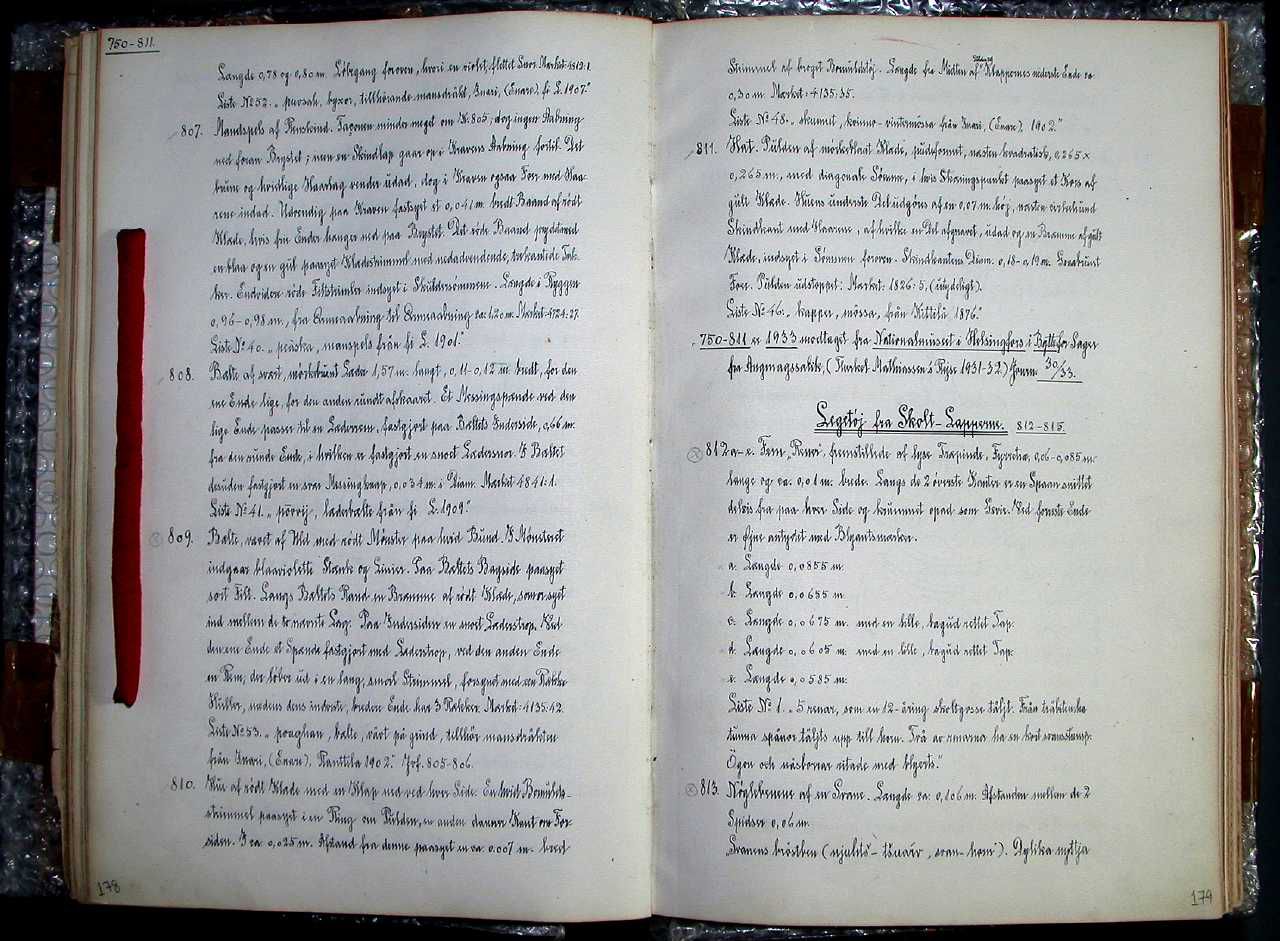 750-811.
Længde 0,78 og 0,80 m. Løbegang foroven, hvori en violet, flettet Snor. Mærket: 4812:1.
Liste № 52. „ byxor, tillhörande mansdräkt, Inari, (Enare), fi L. 1907."
807. Mandspels af Renskind. Faconen minder meget om № 805; dog ingen Aabning
ned foran Brystet; men en Skindlap gaar op i Kravens Aabning fortil. Det
brune og hvidlige Haarlag vender udad, dog i Kraven ogsaa Foer med Haa-
rene indad. Udvendig paa Kraven fastsyet et 0,041 m. bredt Baand af rødt
Klæde, hvis frie Ender hænger ned paa Brystet. Det røde Baand prydet med
en blaa og en gul paasyet Klædestrimmel med nedadvendende, trekantede Tak-
ker. Endvidere røde Filtstrimler indsyet i Skuldersømmene. Længde i Ryggen
0,96-0,98 m., fra Ærmeaabning til Ærmeaabning ca. 1,20 m. Mærket 4724:27.
Liste № 40. „ pesska, manspels från fi L. 1901."
808. Bælte af svært, mørkebrunt Læder 1,57 m. langt, 0,11-0,12 m. bredt, for den
ene Ende lige, for den anden rundt afskaaret. Et Messingspænde ved den
lige Ende passer til en Læderrem, fastgjort paa Bæltets Inderside, 0,66 m.
fra den runde Ende, i hvilken er fastgjort en snoet Lædersnor. I Bæltet
desuden fastgjort en svær Messingknap, 0,034 m. i Diam. Mærket 4841:1.
Liste № 41. „ läderbälte från fi L. 1909."
809. Bælte, vævet af Uld med rødt Mønster paa hvid Bund. I Mønsteret
indgaar blaaviolette Stænk og Linier. Paa Bæltets Bagside paasyet
sort Filt. Langs Bæltets Rand en Bræmme af rødt Klæde, som er syet
ind mellem de to nævnte Lag. Paa Indersiden en snoet Læderstrop. Ved
den ene Ende et Spænde fastgjort med Læderstrop, ved den anden Ende
en Rem, der løber ud i en lang, smal Strimmel, forsynet med een Række
Huller, medens dens inderste, bredere Ende har 3 Rækker. Mærket: 4135:42.
Liste № 53. „ bälte, vävt på grind, tillhör mansdräkten
från Inari, (Enare), Ranttila 1902." Jvf. 805-806.
810. Hue af rødt Klæde med en Klap ned ved hver Side. En hvid Bomulds-
strimmel paasyet i en Ring om Pulden, en anden danner Kant om For-
siden. I ca. 0,025 m. Afstand fra denne paasyet en ca. 0.007 m. bred
178
Strimmel af broget Bomuldstøj. Længde fra Midten af Pulden til Klappernes nederste Ende ca
0,30 m. Mærket: 4135:35.
Liste № 48. „ kvinno-vintermössa från Inari, (Enare), 1902."
811. Hat. Pulden af mörkeblaat Klæde, pudeformet, næsten kvadratisk, 0,265 ×
0,265 m., med diagonale Sömme, i hvis Skæringspunkt paasyet et Kors af
gült Klæde. Huens underste Del udgöres af en 0,07 m. höj, næsten cirkelrund
Skindkant med Haarene, af hvilke en Del afgnavet, udad og en Bræmme af gült
Klæde, indsyet i Sömmen foroven. Skindkantens Diam. 0,18-0,19 m.
Foer. Pulden udstoppet. Mærket: 1826:5, (utydeligt).
Liste № 46. „ kapper, mössa, från Kittilä 1876."
750-811 er 1933 modtaget fra Nationalmuseet i Helsingfors i Bytte for Sager
fra Angmagssalik, (Mærket Mathiassen's Rejse 1931-32) Journ. 30/33.
Legetøj fra Skolt-Lapperne. 812-815.
812 a-e. Fem „Rener", fremstillede af lyse Træpinde. Fyrretræ, 0,06-0,085 m.
lange og ca. 0,01 m. brede. Langs de 2 överste Kanter er en Spaan snittet
delvis fra paa hver Side og krummet opad som Gevir. Ved forreste Ende
er Øjne antydet med Blyantsmærker.
a. Længde 0,0855 m.
b. Længde 0,0655 m.
c. Længde 0,0675 m. med en lille, bagud rettet Tap.
d. Længde 0,0605 m. med en lille, bagud rettet Tap.
e. Længde 0,0585 m.
Liste № 1. „5 renar, som en 12-åring skoltgosse täljt. Från träbitarna
tunna spånor täljts upp till horn. Två av renarna ha en kort svansstump.
Ögon och näsborrar ritade med blyerts."
813. Nøglebenene af en Svane. Længde ca. 0,106 m. Afstanden mellem de 2
Spidser 0,06 m.
„Svanens bröstben (). Dylika nyttja
179